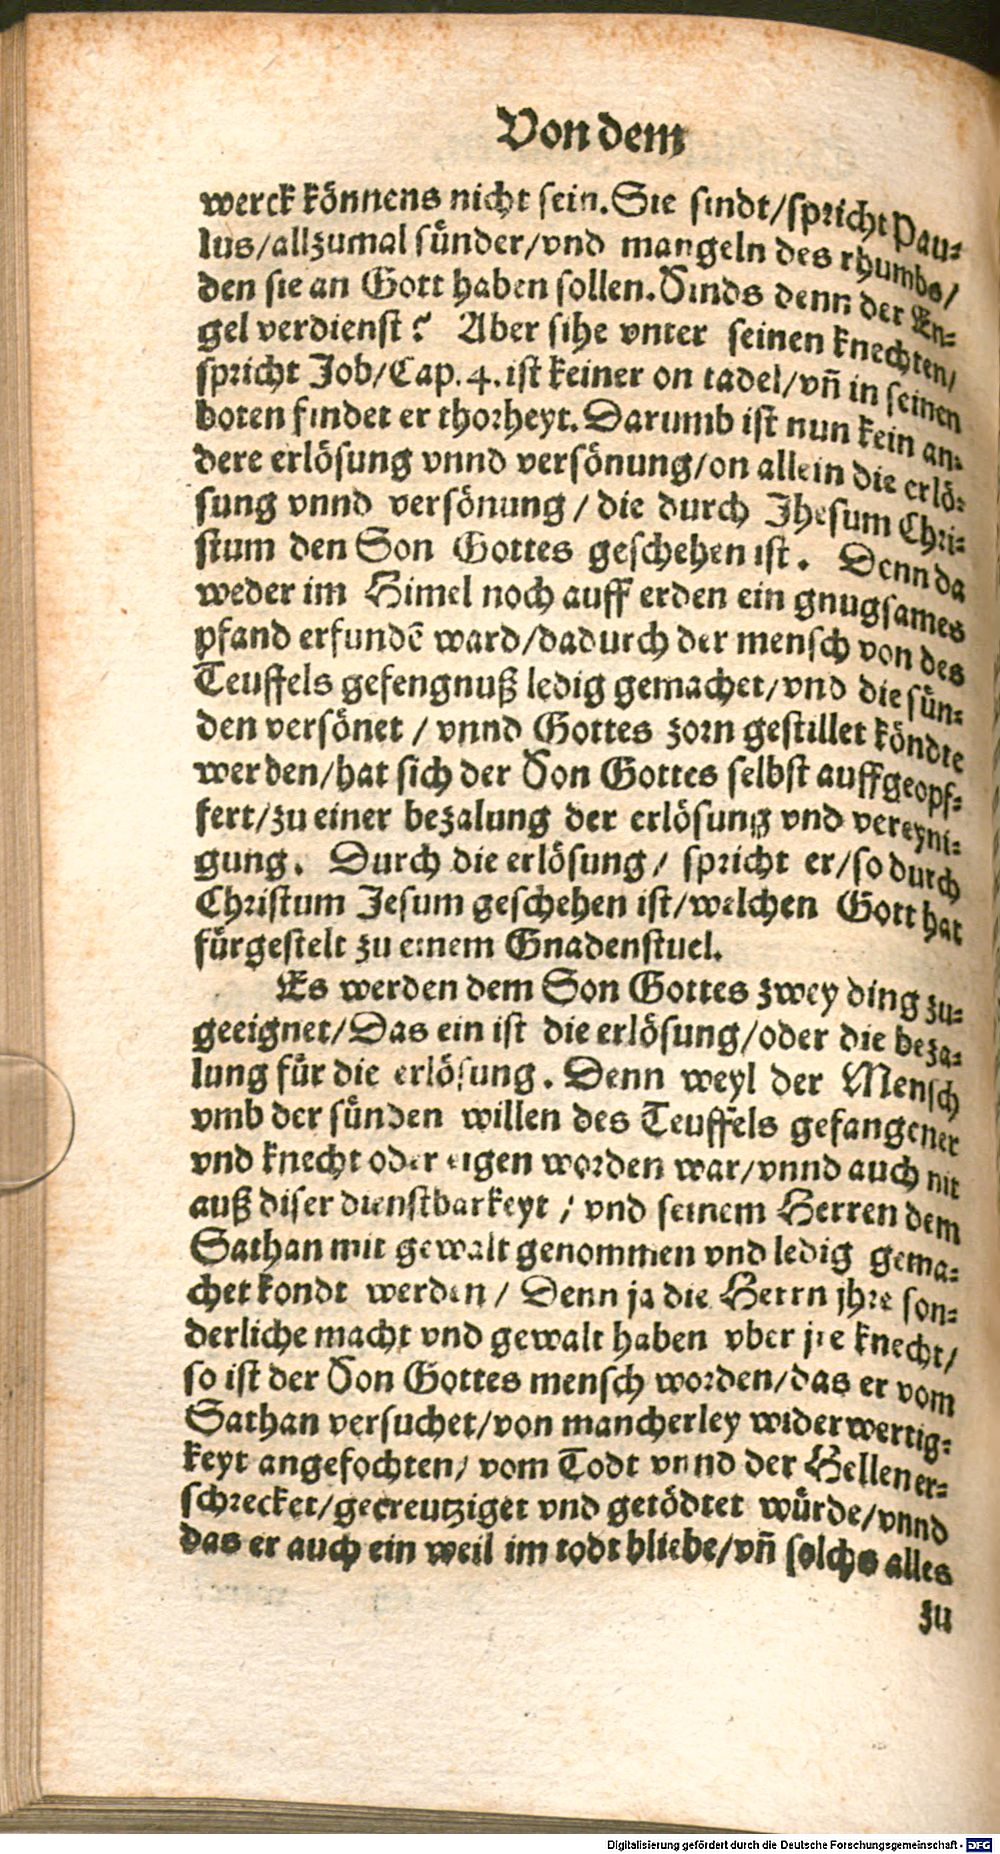 Von dem
werck könnens nicht sein. Sie sindt/spricht Pau⸗
lus/allzumal sünder/vnd mangeln des rhumbs/
den sie an Gott haben sollen. Sinds denn der En⸗
gel verdienst? Aber sihe vnter seinen knechten/
spricht Job/Cap. 4. ist keiner on tadel/vñ in seinen
boten findet er thorheyt. Darumb ist nun kein an⸗
dere erlösung vnnd versönung/on allein die erlö⸗
sung vnnd versönung / die durch Jhesum Chri⸗
stum den Son Gottes geschehen ist. Denn da
weder im Himel noch auff erden ein gnugsames
pfand erfundē ward/dadurch der mensch von des
Teuffels gefengnuß ledig gemachet/vnd die sün⸗
den versönet / vnnd Gottes zorn gestillet köndte
werden/hat sich der Son Gottes selbst auffgeopf⸗
fert/zu einer bezalung der erlösung vnd vereyni⸗
gung. Durch die erlösung/ spricht er/so durch
Christum Jesum geschehen ist/welchen Gott hat
fürgestelt zu einem Gnadenstuel.
Es werden dem Son Gottes zwey ding zu⸗
geeignet/Das ein ist die erlösung/oder die beza⸗
lung für die erlösung. Denn weyl der Mensch
vmb der sünden willen des Teuffels gefangener
vnd knecht oder eigen worden war/vnnd auch nit
auß diser dienstbarkeyt / vnd seinem Herren dem
Sathan mit gewalt genommen vnd ledig gema⸗
chet kondt werden / Denn ja die Herrn jhre son⸗
derliche macht vnd gewalt haben vber jre knecht/
so ist der Son Gottes mensch worden/das er vom
Sathan versuchet/von mancherley widerwertig⸗
keyt angefochten/ vom Todt vnnd der Hellen er⸗
schrecket/gecreutziget vnd getödtet würde/vnnd
das er auch ein weil im todt bliebe/vñ solchs alles
zu
Digitalisierung gefördert durch die Deutsche Forschungsgemeinschaft - DFG